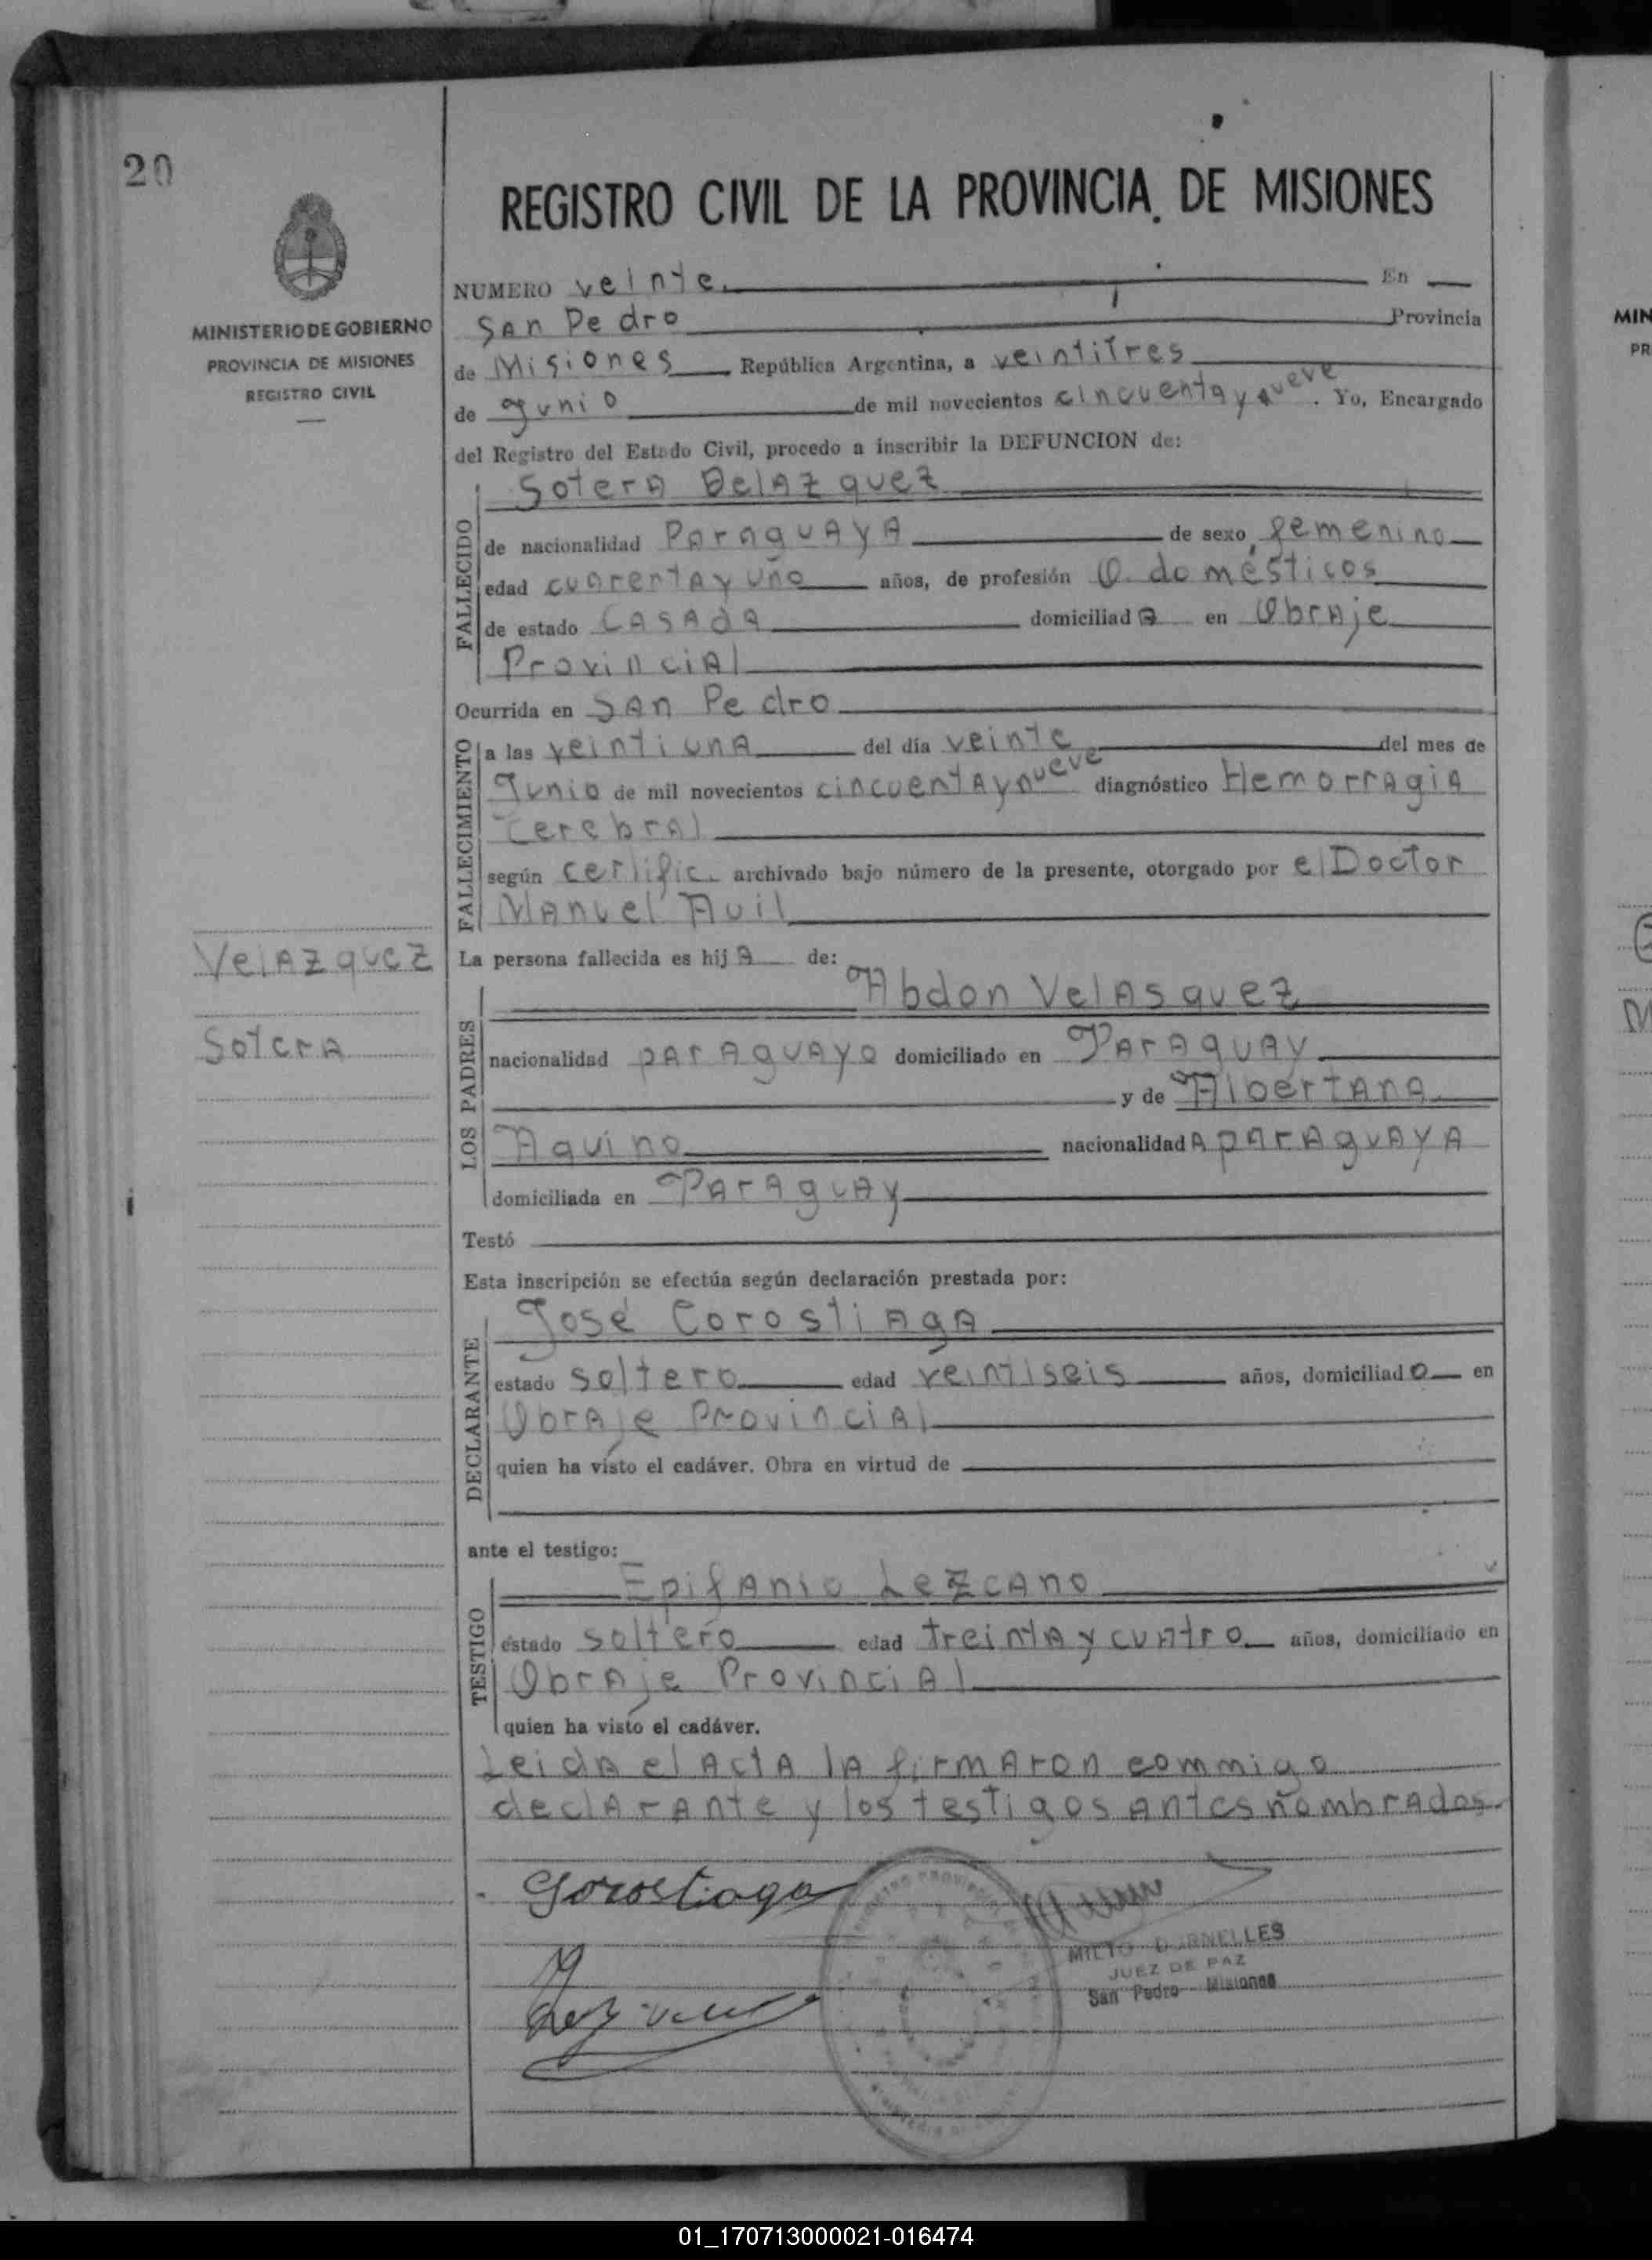 20
REGISTRO CIVIL DE LA PROVINCIA DE MISIONES
MINISTERIO DE GOBIERNO
PROVINCIA DE MISIONES
REGISTRO CIVIL
NUMERO veinte En
San Pedro Provincia
de Misiones República Argentina, a veintitres
de Junio de mil novecientos cincuenta y nueve. Yo, Encargado
del Registro del Estado Civil, procedo a inscribir la DEFUNCION de:
FALLECIDO
Sotera Belazquez
de nacionalidad Paraguaya de sexo femenino
edad cuarenta y uno años, de profesión Q. domésticos
de estado Casada domiciliada en Obraje
Provincial
Ocurrida en San Pedro
FALLECIMIENTO
a las veintiuna del día veinte del mes de
Junio de mil novecientos cincuenta y nueve diagnóstico Hemorragia
Cerebral
según certific. archivado bajo número de la presente, otorgado por el Doctor
Manuel Avil
Velazquez
Sotera
La persona fallecida es hija de:
LOS PADRES
Abdon Velasquez
nacionalidad paraguayo domiciliado en Paraguay
y de Albertana
Aquino nacionalidad a paraguaya
domiciliada en Paraguay
Testó
Esta inscripción se efectúa según declaración prestada por:
DECLARANTE
José Corostiaga
estado soltero edad veintiseis años, domiciliado en
Obraje Provincial
quien ha visto el cadáver. Obra en virtud de
ante el testigo:
TESTIGO
Epifanio Lezcano
estado soltero edad treinta y cuatro años, domiciliado en
Obraje Provincial
quien ha visto el cadáver.
Leida el acta la firmaron commigo
declarante y los testigos antes nombrados.
Gorostiaga
JUEZ DE PAZ
San Pedro - Misiones
MIN
PR
01_170713000021-016474